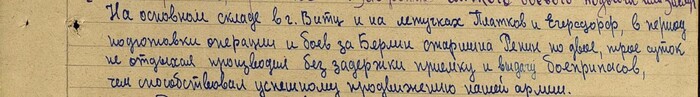 На основном складе в г. Витц и на летучках Платков и Егерсдорф, в период
подготовки операции и боев за Берлин старшина Ренин по двое, трое суток
не отдыхая производил без задержки приемку и выдачу боеприпасов,
чем способствовал успешному продвижению нашей армии.